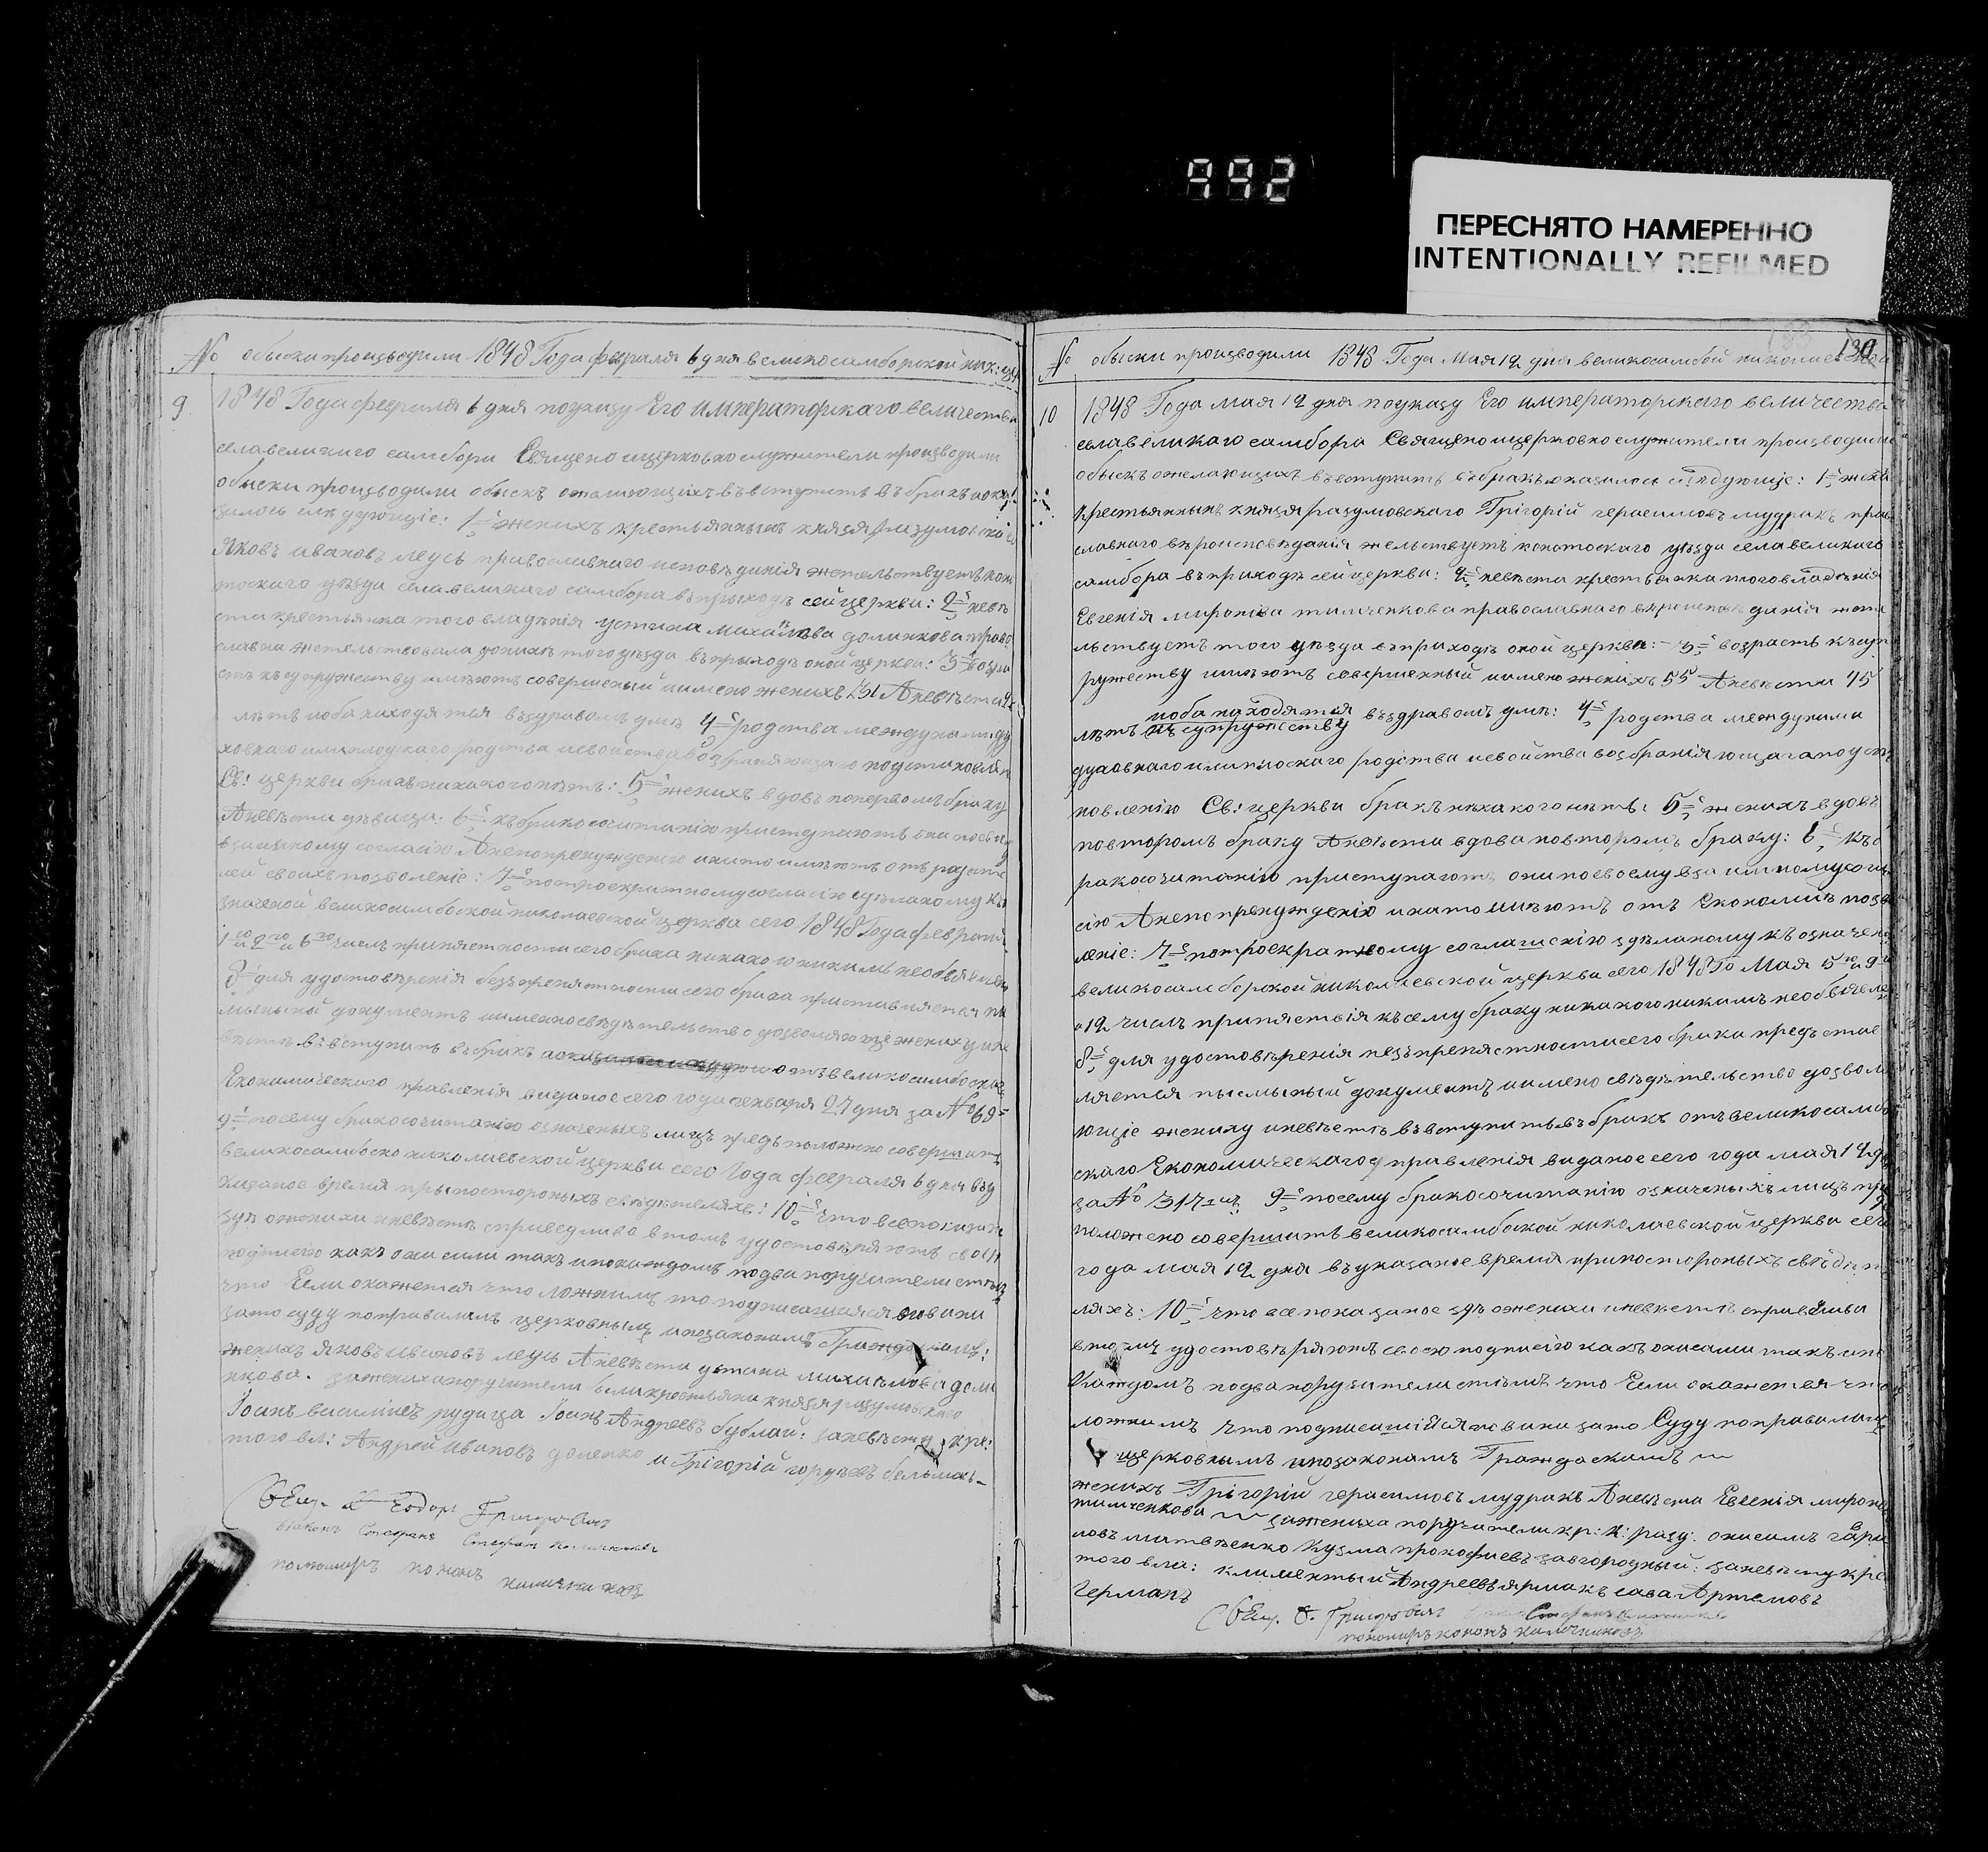 992
ПЕРЕСНЯТО НАМЕРЕННО
INTENTIONALLY REFILMED
130
№ обыски производили 1848 Года февраля 6 дня великосамборской ник: цер
9 1848 Года февраля 6 дня поуказу Его императорскаго величества
села великаго самбора Священо ицерковно служители производили
обыски производили обыскъ ожелающихъ въвступить въбракъ иока
залось следующіе: 1-е женихъ крестьянинъ князя разумовскаго
Яковъ ивановъ леусь православнаго исповѣданія жительствуетъ коно
топскаго уѣзда села великаго самбора въприходѣ сей церкви: 2-е невѣ
ста крестьянка того владѣнія устина михайлова долинкова право
славная жительствовала доныне того уѣзда въприходѣ оной церкви: 3-е возра
стъ къ супружеству имѣютъ совершеный именно женихъ 31 Аневѣста
лѣтъ иоба находятся въздравомъ умѣ 4-е родства между ними ду
ховнаго или плодскаго родства исвойства возбраняющаго подстановлен
Св: церкви бракъ никакого нѣтъ: 5-е женихъ вдовъ поперв­омъ браку
Аневѣста дѣвица: 6-е къбракосочитанію приступаютъ они посвоему
взаимному согласію Анепопренуждению инато имѣютъ отъ родите
лей своихъ позволеніе: 7-е потроекратному согласію сдѣланому къо
значеной великосамбоской николаевской церкви сего 1848 Года февраля
1-го и 2-го и 6-го числъ припятствіи сего брака никакого никимъ необъявлено
8-е для удостовѣренія безъпрепятности сего брака приставляется пи
мьмяный документъ именно свѣдѣтельство дозволяющіе жениху ине
вѣстѣ въвступить въбракъ отъ великосамбоскаго
Економическаго правленія виданое сего года генваря 27 дня за № 69-
9-е посему бракосочитанію означеныхъ лицъ предъположено совершить
великосамбоско николаевской церкви сего Года февраля 6 дня въу
казаное время при постороныхъ свѣдѣтеляхъ: 10-е что все показан
здѣ ожениха иневѣстѣ справедливо втомъ удостовѣряютъ своею
подписію какъ они сами такъ ипокаждомъ подва поручители стѣмъ
что Если окажется что ложнимъ то подписавшіяся повини
зато суду поправиламъ церковнымъ ипозаконамъ Гражданскимъ:
женихъ яковъ ивановъ леусь Аневѣста устина михайлова доли
нкова. заженихапоручители были крестьяни князя разумовскаго
Іоанъ василіевъ рудица Іоанъ Андреевъ бублай: заневѣсту кре:
того вл: Андрей ивановъ доленко и Грігорій гордѣевъ бельмаз-
Свящ. Григорович
дьяконъ Стефанъ
пономарь кононъ калиничковъ
№ обыски производили 1848 Года Мая 12 дня великосамбой николаевской
10 1848 Года мая 12 дня поуказу Его императорскаго величества
села великаго самбора Священо ицерковно служители производили
обыскъ ожелающихъ въвступить въбракъ оказалось слѣдующіе: 1-е жених
крестьянинъ князя разумовскаго Грігорій герасимовъ мудракъ прав
славнаго вѣроисповѣданія жительствуетъ конотоскаго уѣзда села великаго
самбора въприходѣ сей церкви: 2-е невѣста крестьянка того владѣнія
Евгенія миронова тимченкова православнаго вѣроисповѣданія жите
льствуетъ того уѣзда въприходѣ оной церкви: 3-е возрастъ къ суп
ружеству имѣютъ совершенный имено женихъ 55 Аневѣста 45
лѣтъ иоба находятся въздравомъ умѣ: 4-е родства между ними
духовнаго или плоскаго родства исвойства возбраніяющаго подста
новленію Св: церкви бракъ никакого нѣтъ: 5-е женихъ вдовъ
повторомъ браку Аневѣста вдова повторомъ браку: 6-е къб
ракосочитанію приступаютъ они посвоему взаимному согла
сію Анепопренужденію инато имѣютъ отъ Економіи позво
леніе: 7-е потроекратному согласию здѣланому къозначен
великосамборской николаевской церкви сего 1848 Го Мая 5-го и 9-го
и 12 числъ припяствія къ сему браку никакого никимъ необъявлено
8-е для удостовѣренія безъпрепятности сего брака предъстав
ляется писмяный документъ имено свѣдѣтельство дозвол
ющіе жениху иневѣстѣ въвступить въбракъ отъ великосамбо
скаго Економическаго управленія виданое сего года мая 12 д
за № 317 9-е посему бракосочитанію означеныхъ лицъ пред
положено совершить великосамбоской николаевской церкви сего
года мая 12 дня въуказаное время припостороныхъ свѣдѣте
ляхъ: 10-е что все показаное здѣ ожениха иневѣстѣ справедливо
втомъ удостовѣряютъ своею подписію какъ они сами такъ ипо
Каждомъ подва поручители стѣмъ что Если окажется что
ложнимъ что подписавшійся повини зато Суду поправиламъ
церковнымъ ипозаконамъ Гражданскимъ
женихъ Грігорій герасимовъ мудракъ Аневѣста Евгенія миронова
тимченкова зажениха поручатели кр: к: разу: онисимъ гари
ловъ матвѣенко кузма прокофиевъ завгородный: заневѣсту кре
того вла: климентый Андреевъ ярмакъ сава Артемовъ
Германъ
Свящ. Ѳ. Григорович Стефанъ
пономарь кононъ калиничковъ